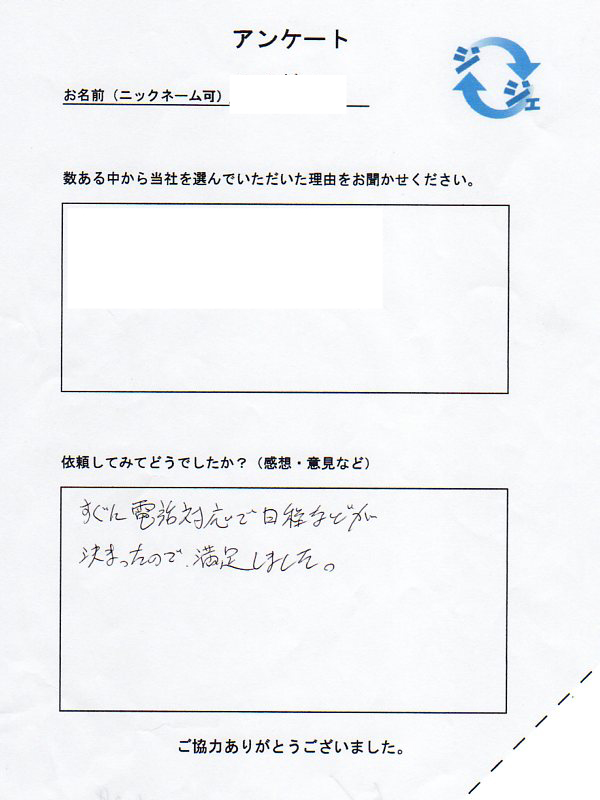 アンケート
ジジェ
お名前（ニックネーム可）
数ある中から当社を選んでいただいた理由をお聞かせください。
依頼してみてどうでしたか？（感想・意見など）
すぐに電話対応で日程などが
決まったので、満足しました。
ご協力ありがとうございました。